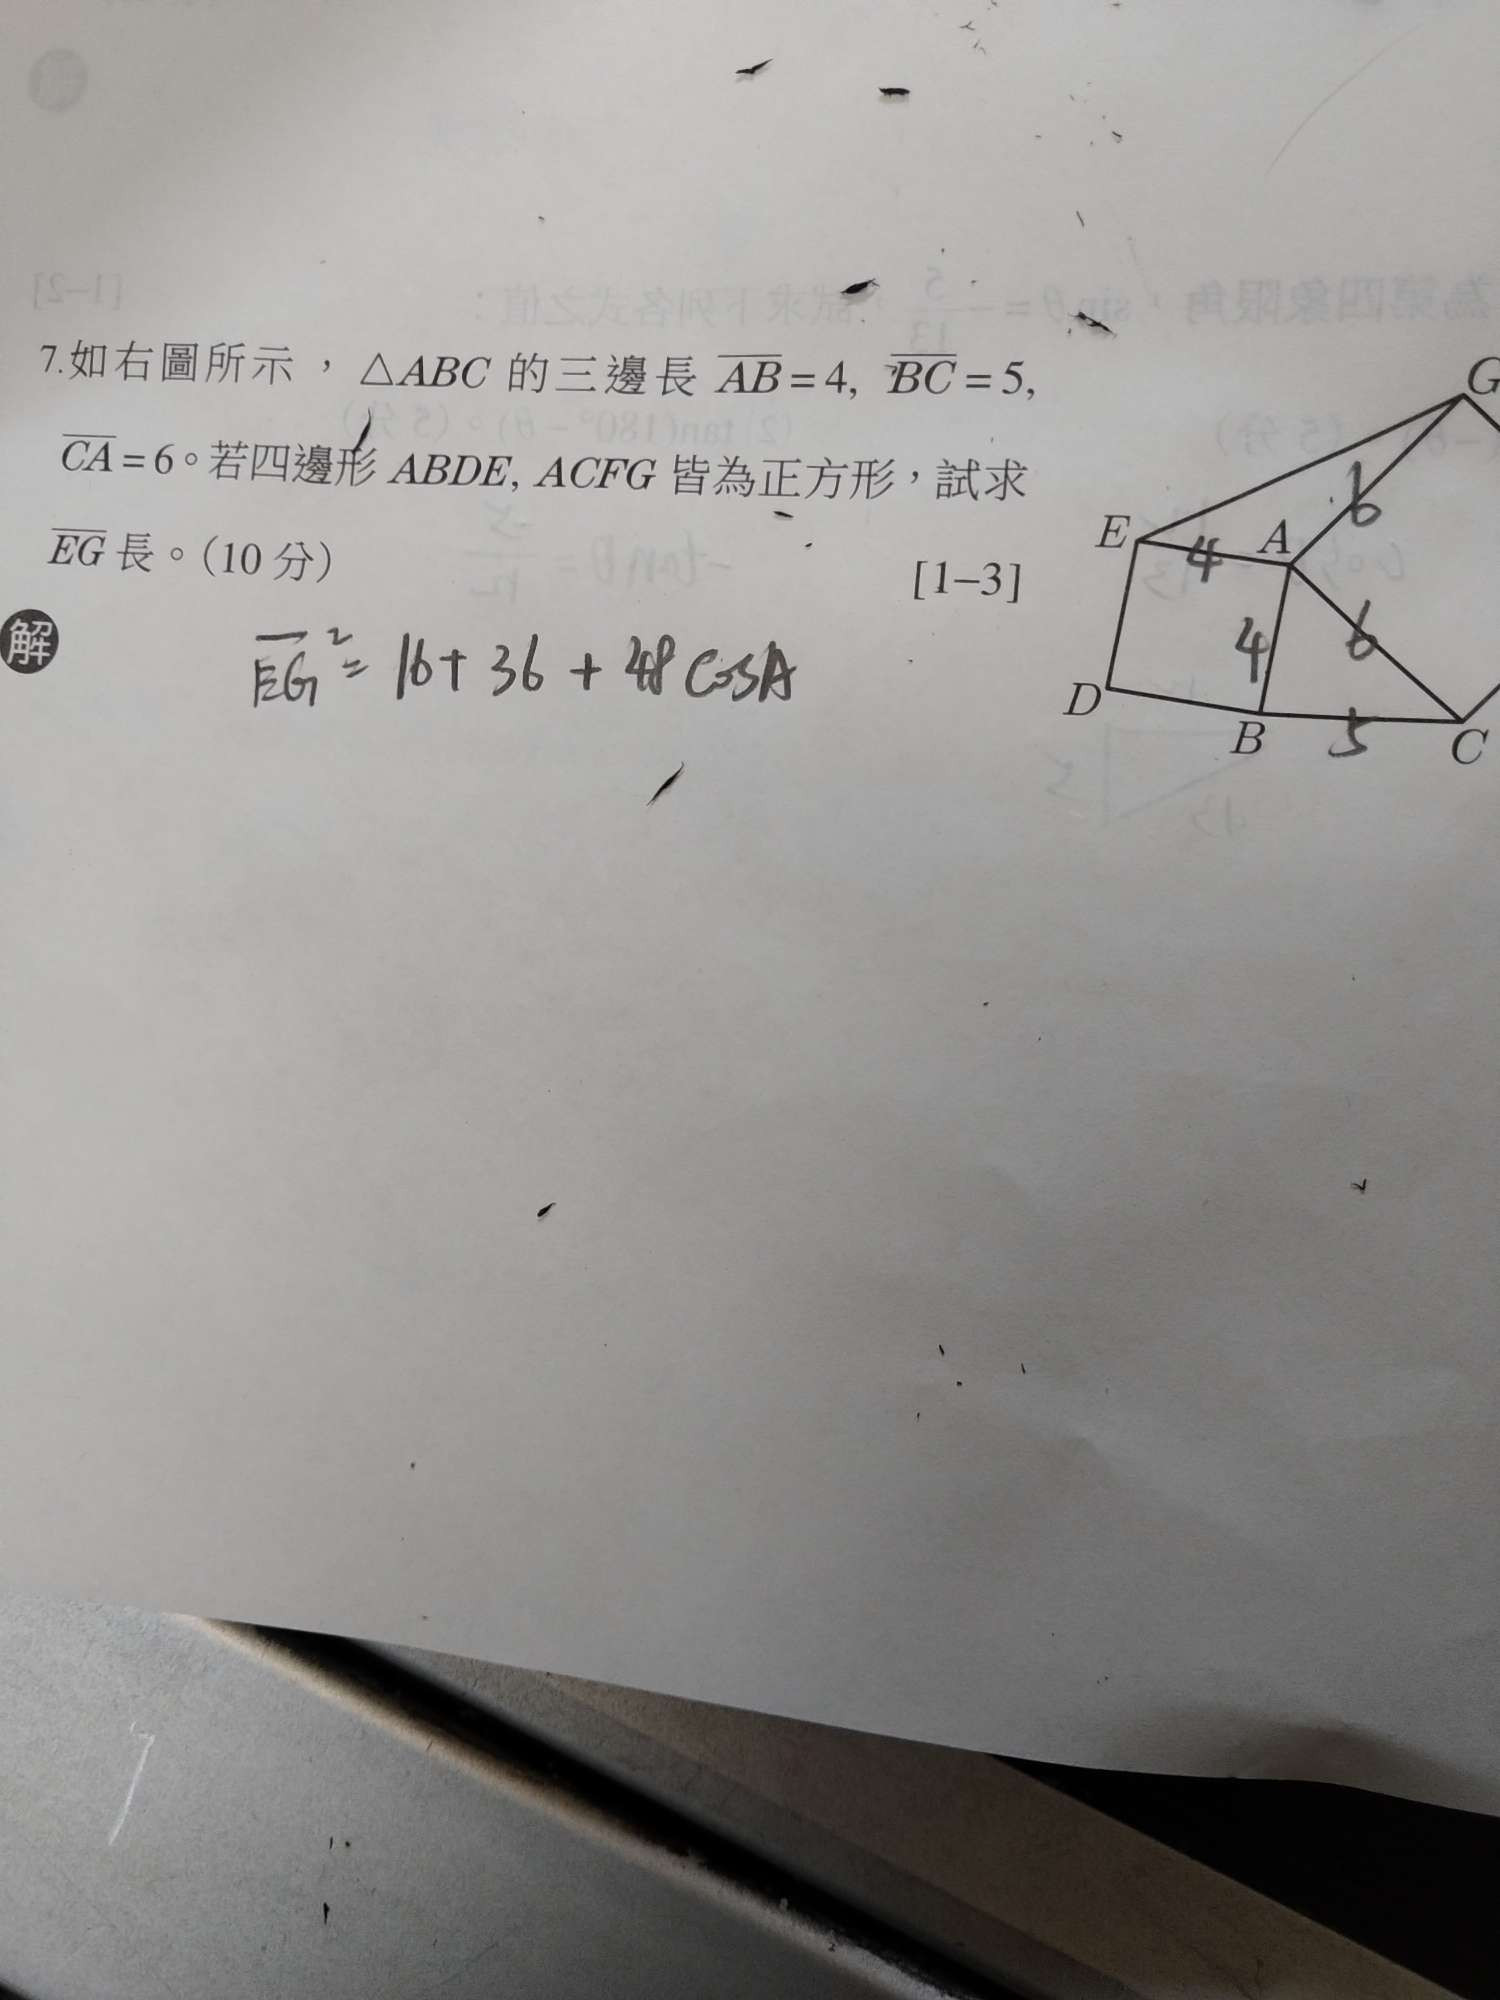 7.如右圖所示，△ABC 的三邊長 AB=4, BC=5,
CA=6。若四邊形 ABDE, ACFG 皆為正方形，試求
EG 長。(10 分)
[1–3]
解
EG²= 16+ 36 + 48 cosA
G
6
E
4
A
4
6
D
B
5
C